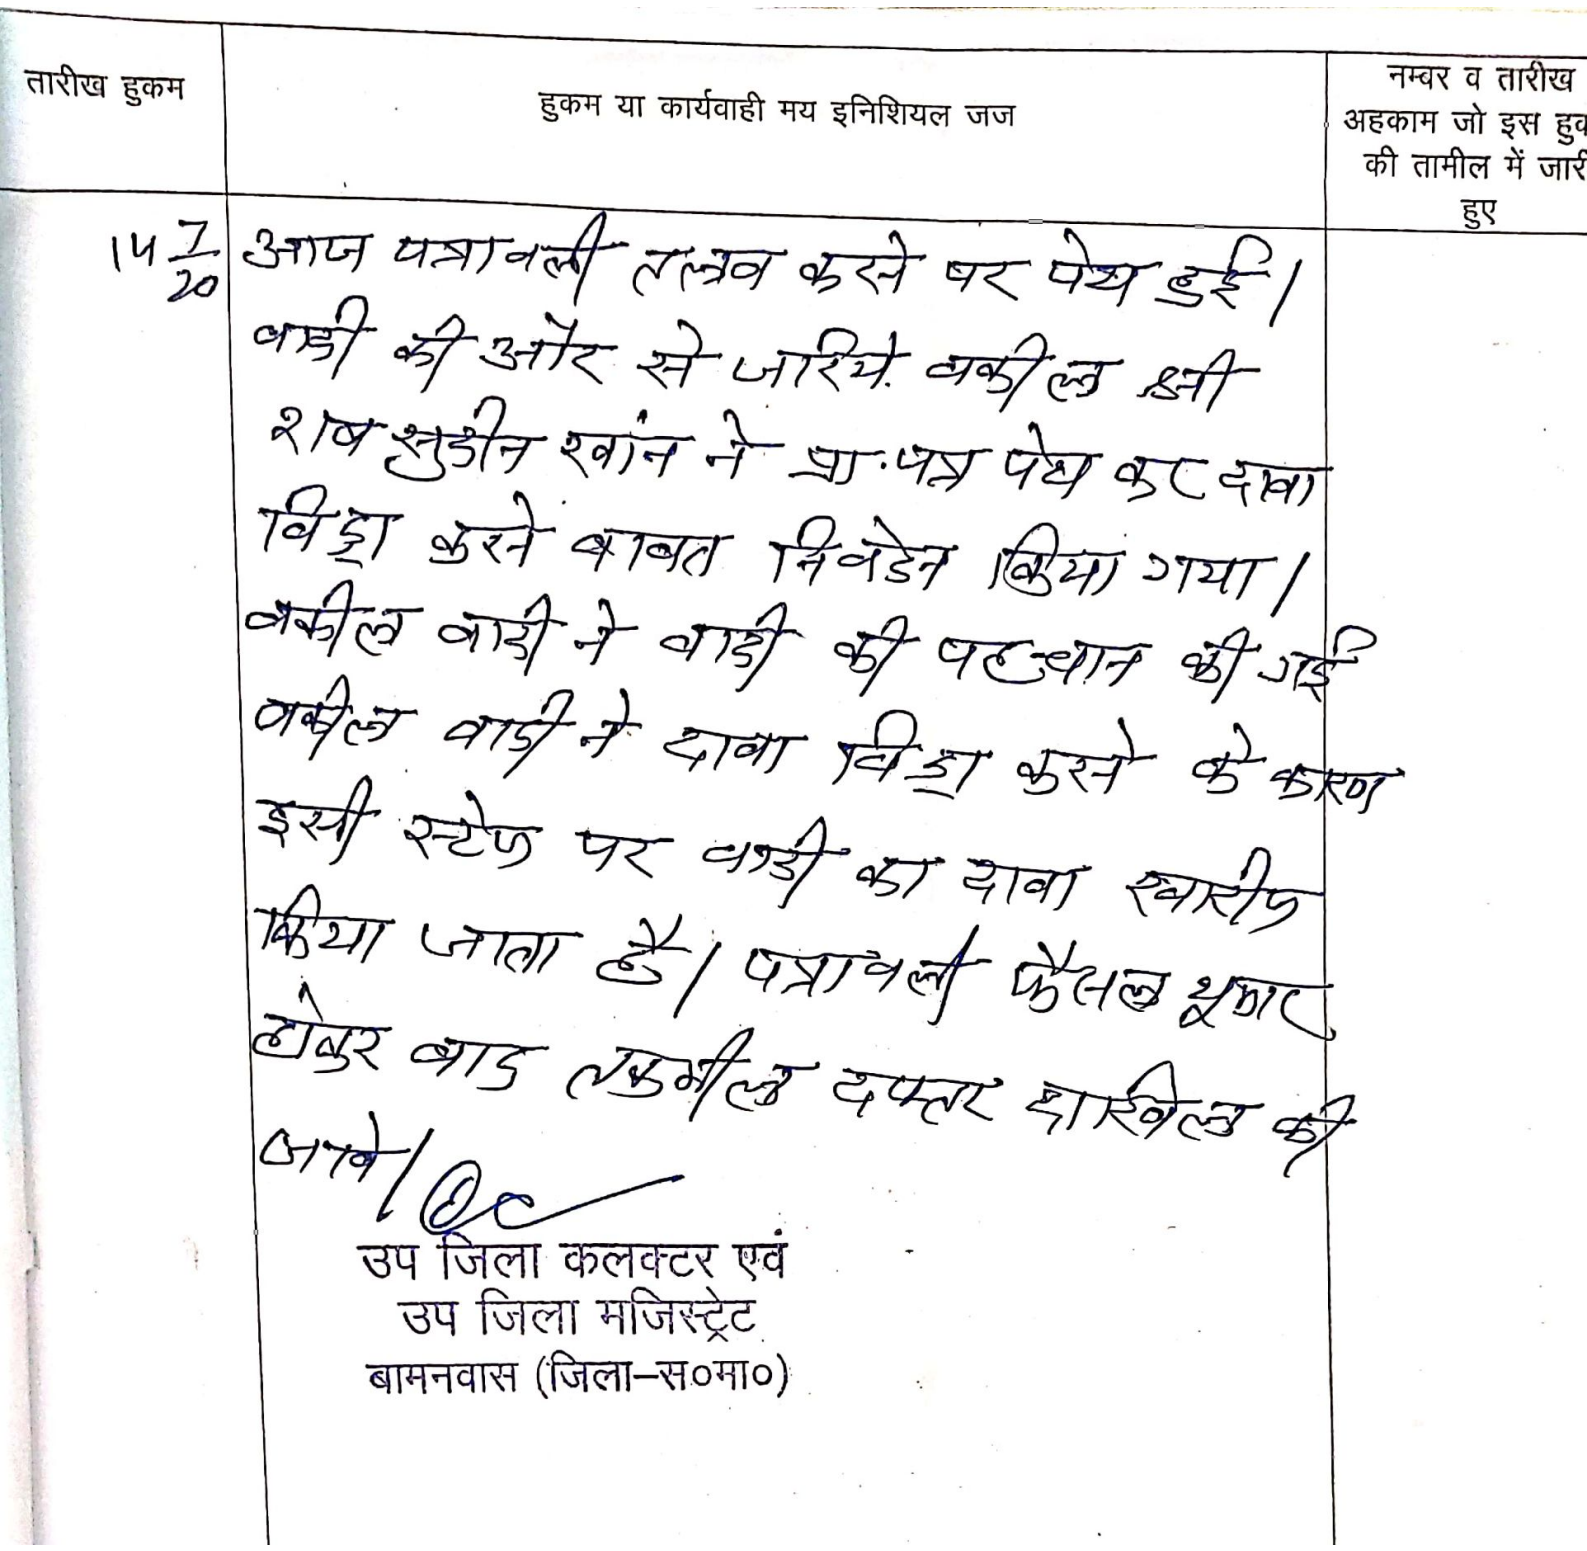 तारीख हुकम
हुकम या कार्यवाही मय इनिशियल जज
नम्बर व तारीख
अहकाम जो इस हुक
की तामील में जारी
हुए
14 7/20
आज पत्रावली तलब करने पर पेश हुई।
वादी की ओर से जरिये वकील श्री
खांन ने प्रा.पत्र पेश कर दावा
विड्रा करने बाबत निवेदन किया गया।
वकील वादी ने वादी की पहचान की गई
वकील वादी ने दावा विड्रा करने के कारण
इसी स्टेज पर वादी का दावा खारीज
किया जाता है। पत्रावली फैसल शुमार
होकर बाद तकमील दफ्तर दाखिल की
जावे।
उप जिला कलक्टर एवं
उप जिला मजिस्ट्रेट
बामनवास (जिला–स०मा०)